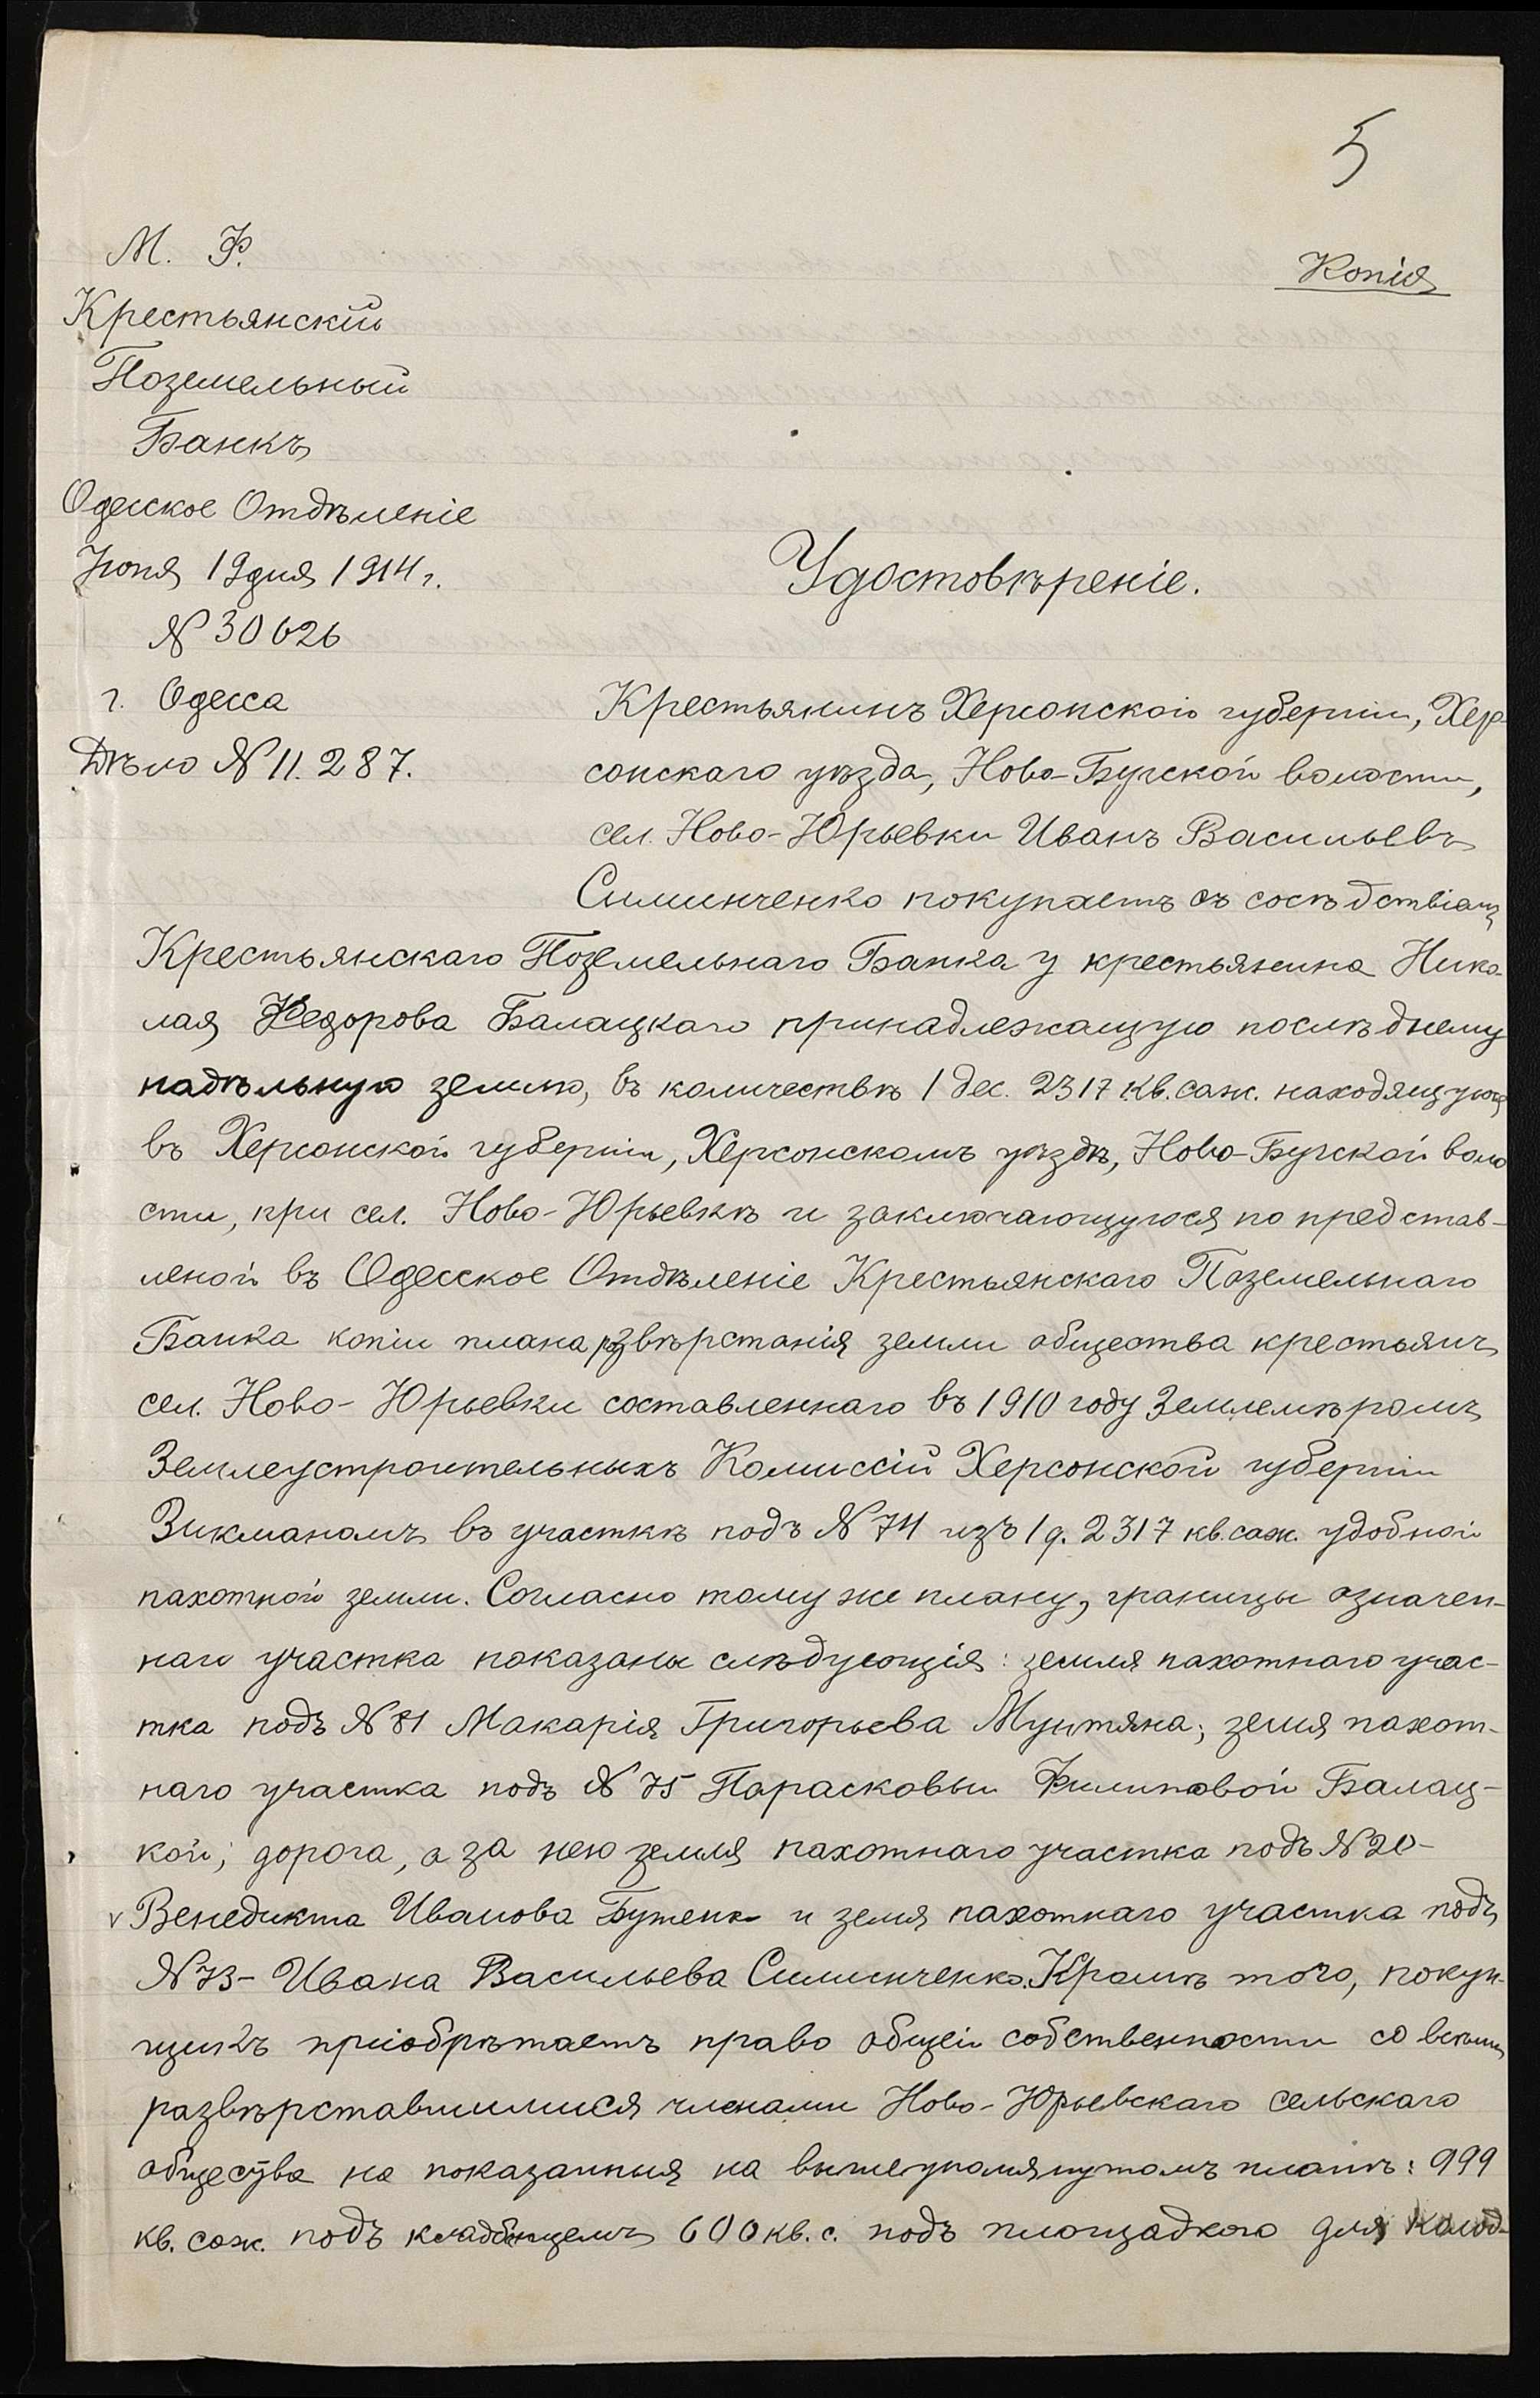 5
М. Ф.
Копія
Крестьянскій
Поземельный
Банкъ
Одесское Отдѣленіе
Іюня 19 дня 1914 г.
№ 30626
г. Одесса
Дѣло № 11.287.
Удостовѣреніе.
Крестьянинъ Херсонской губерніи, Хер-
сонскаго уѣзда, Ново-Бугской волости,
сел. Ново-Юрьевки Иванъ Васильевъ
Симинченко покупаетъ съ
Крестьянскаго Поземельнаго Банка у крестьянина Нико-
лая Федорова Балацкаго принадлежащую послѣднему
надѣльную землю, въ количествѣ 1 дес. 2317 кв. саж. находящуюся
въ Херсонской губерніи, Херсонскомъ уѣздѣ, Ново-Бугской воло
сти, при сел. Ново-Юрьевкѣ и заключающуюся по представ-
леной въ Одесское Отдѣленіе Крестьянскаго Поземельнаго
Банка копіи плана развѣрстанія земли общества крестьянъ
сел. Ново-Юрьевки составленнаго въ 1910 году Землемѣромъ
Землеустроительныхъ Комиссій Херсонской губерніи
Зикманомъ въ участкѣ подъ № 74 изъ 1 д. 2317 кв. саж. удобной
пахотной земли. Согласно тому же плану, границы означен-
наго участка показаны слѣдующія: земля пахотнаго учас-
тка подъ № 81 Макарія Григорьева Мунтяна; земля пахот-
наго участка подъ № 75 Парасковьи Филиповой Балац-
кой; дорога, а за нею земля пахотнаго участка подъ № 20-
Венедикта Иванова Бутенко и земля пахотнаго участка подъ
№ 73- Ивана Васильева Симинченко. Кромѣ того, покуп-
щикъ пріобрѣтаетъ право общей собственности со всѣми
развѣрставшимися членами Ново-Юрьевскаго сельскаго
общества на показанныя на вышеупомянутомъ планѣ: 999
кв. саж. подъ кладбищемъ 600 кв. с. подъ площадкою для колод-